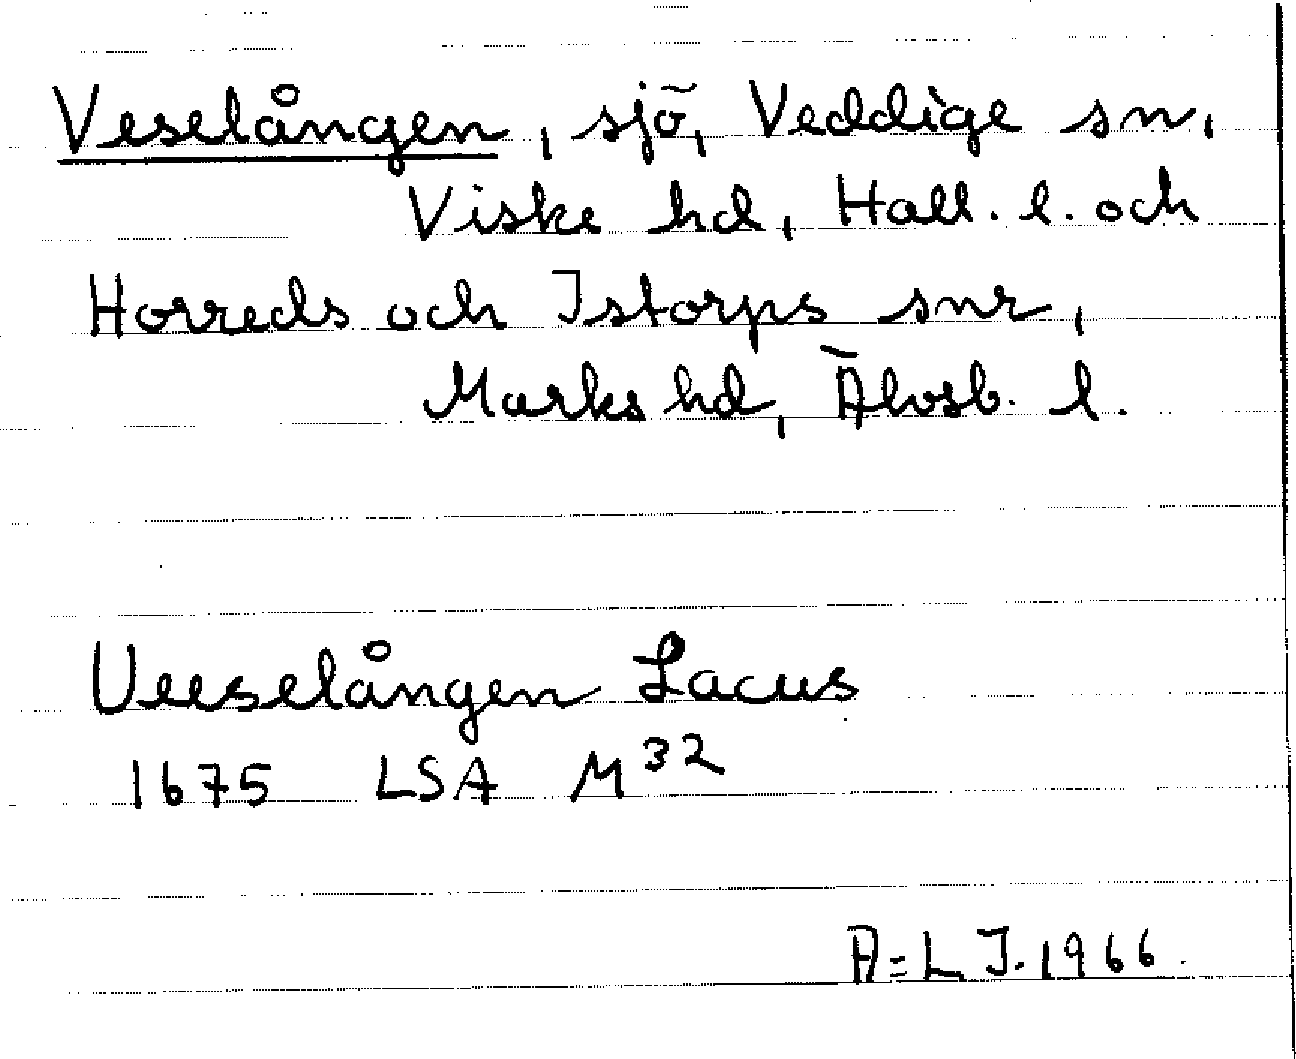 Veselången, sjö, Veddige sn,
Viske hd, Hall. l. och
Horreds och Istorps snr,
Marks hd, Älvsb. l.
Veeselången Lacus
1675 LSA M32
A=L J. 1966.